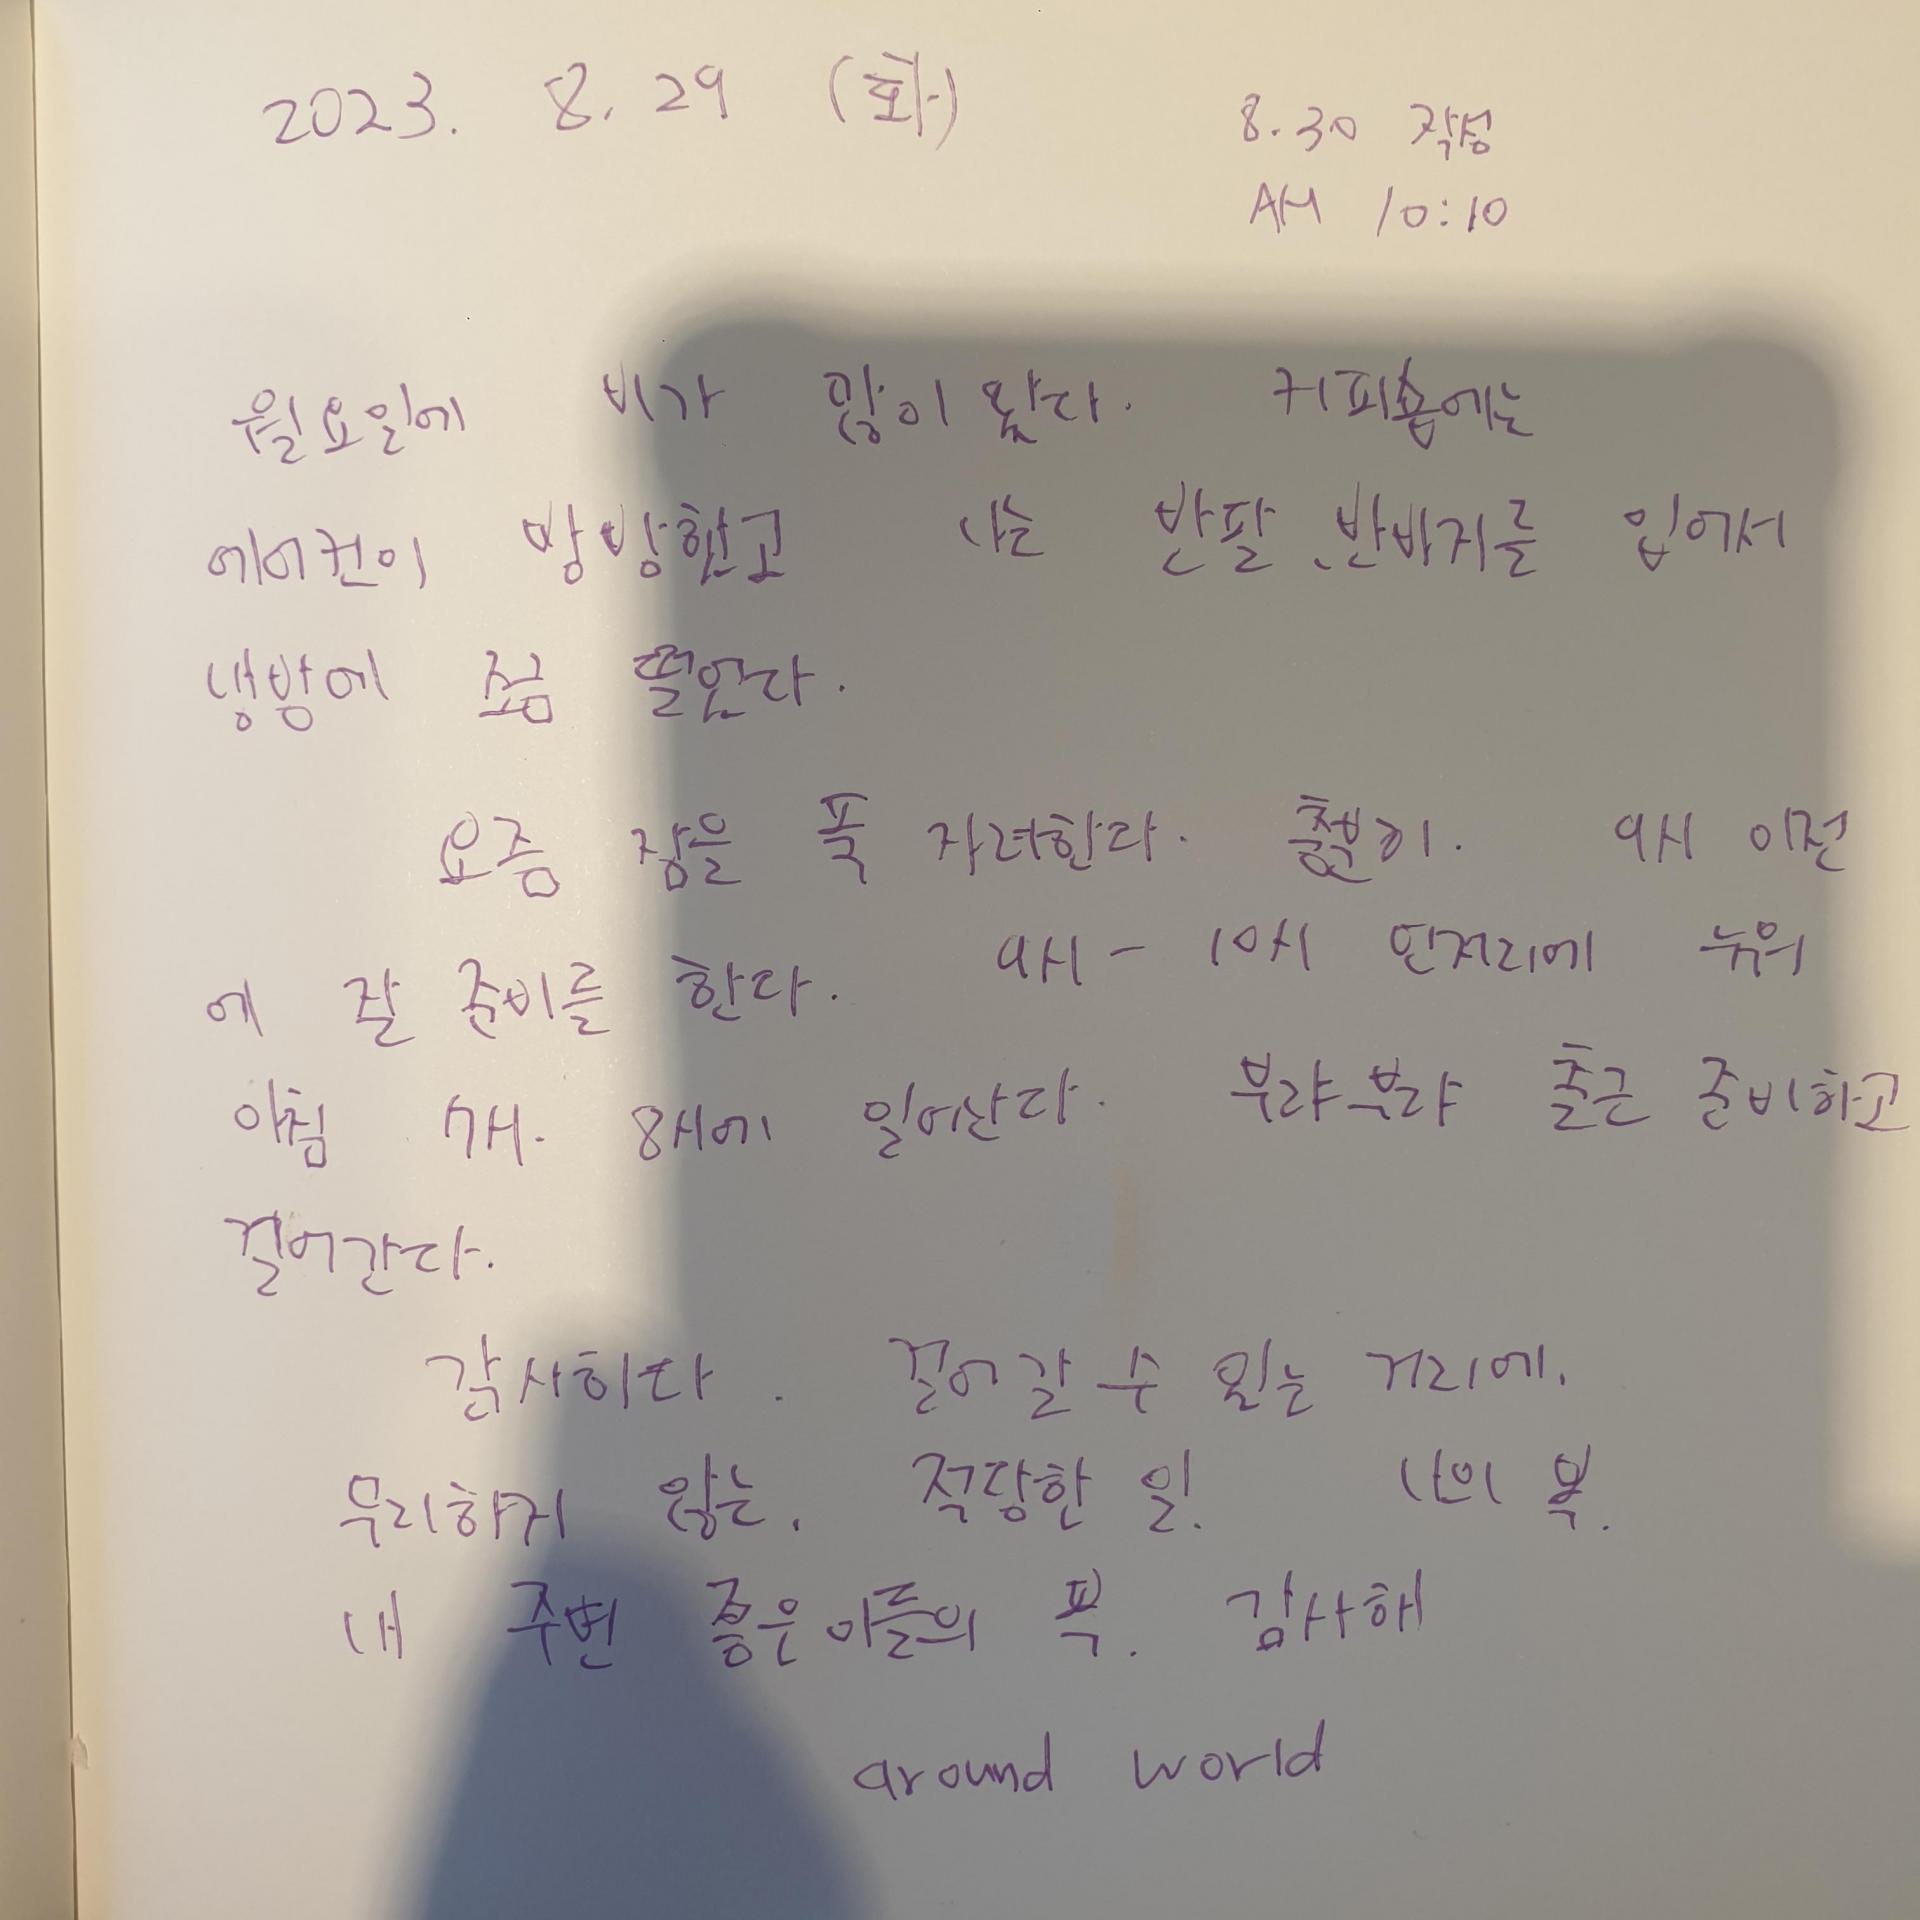 2023. 8. 29 (화)
8.30 작성
AM 10:10
월요일에 비가 많이 왔다. 커피숍에는
에어컨이 빵빵했고 나는 반팔、반바지를 입어서
냉방에 조금 떨었다.
요즘 잠을 푹 자려한다. 충분히. 9시 이전
에 잘 준비를 한다. 9시 - 10시 언저리에 누워
아침 7시. 8시에 일어난다. 부랴부랴 출근 준비하고
걸어간다.
감사하다. 걸어갈 수 있는 거리에.
무리하지 않는. 적당한 일. 나의 복.
내 주변 좋은 이들의 복. 감사해
around world